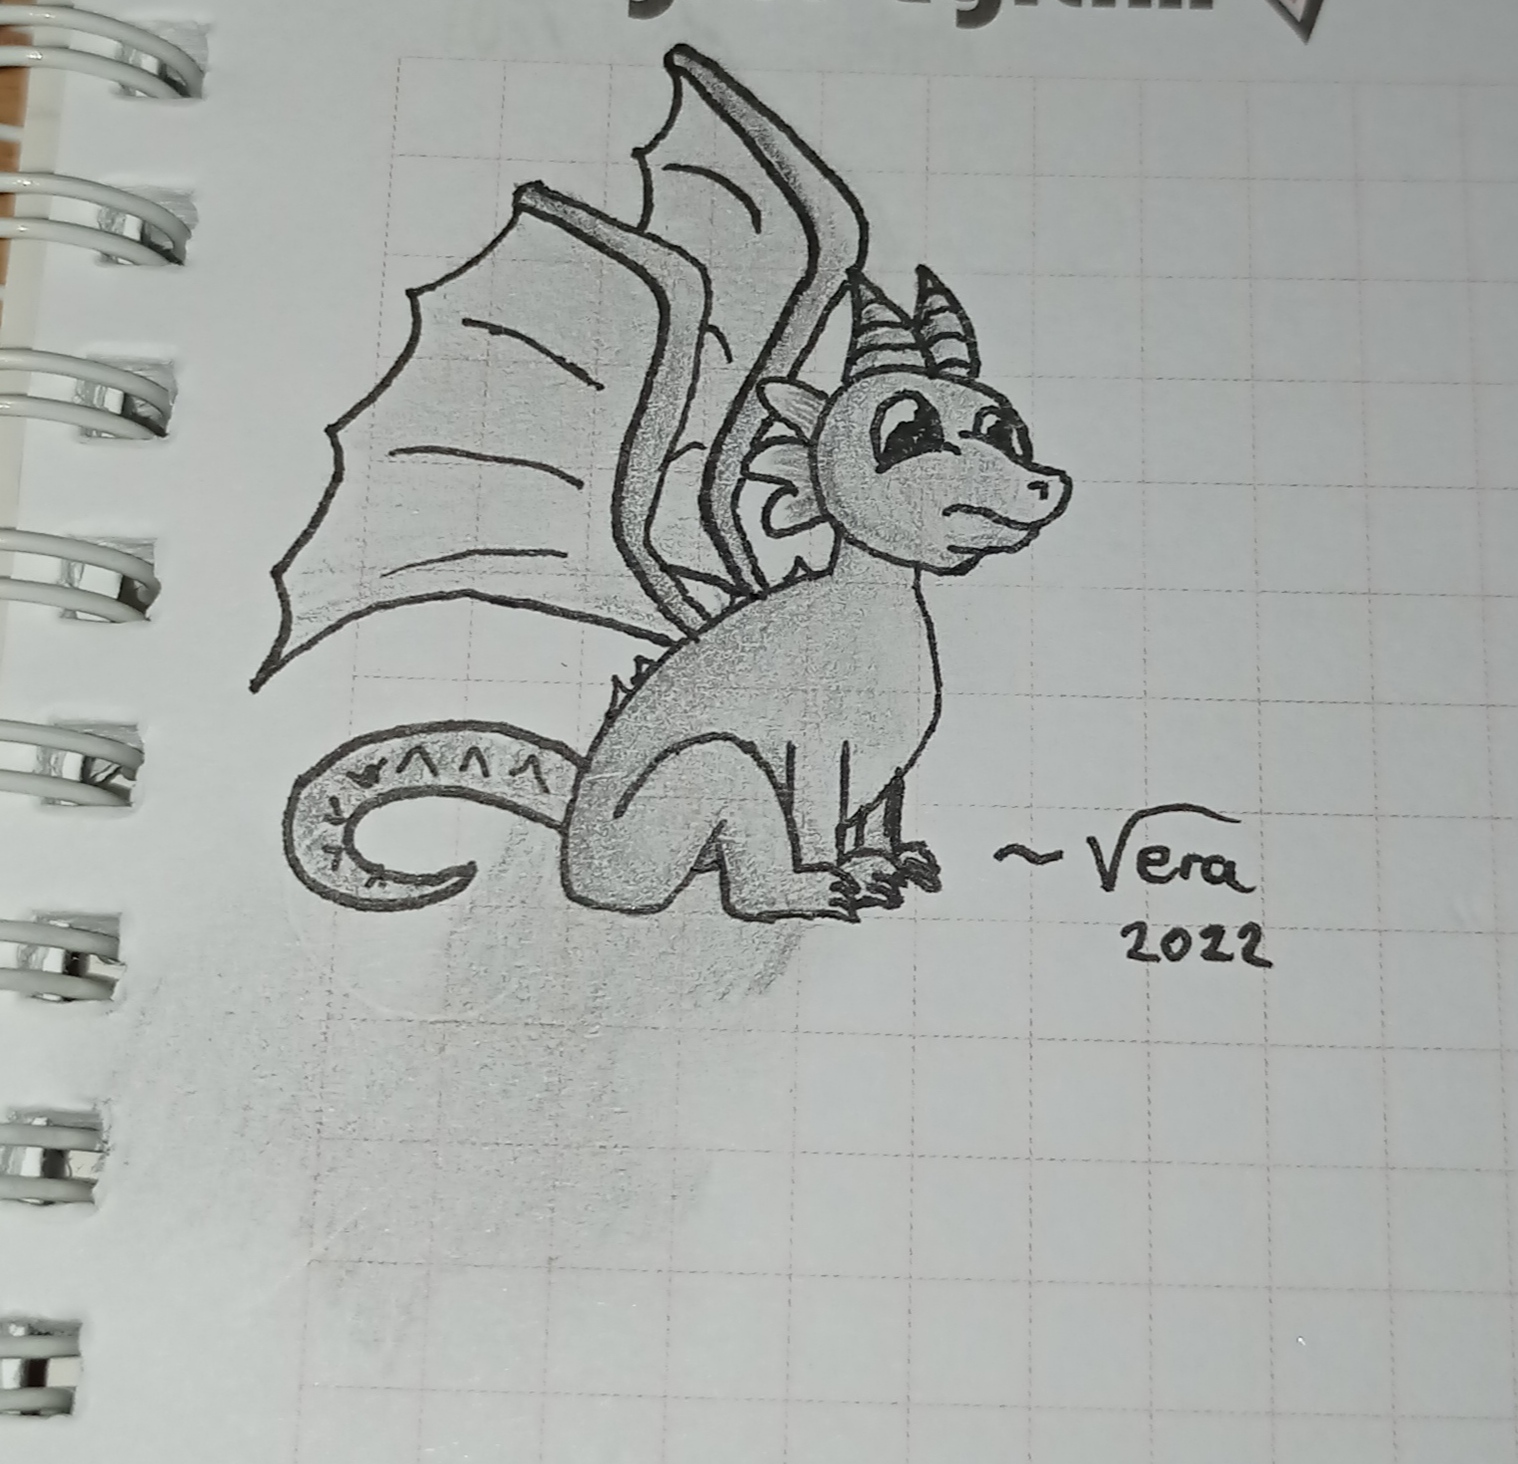 ~ Vera
2022